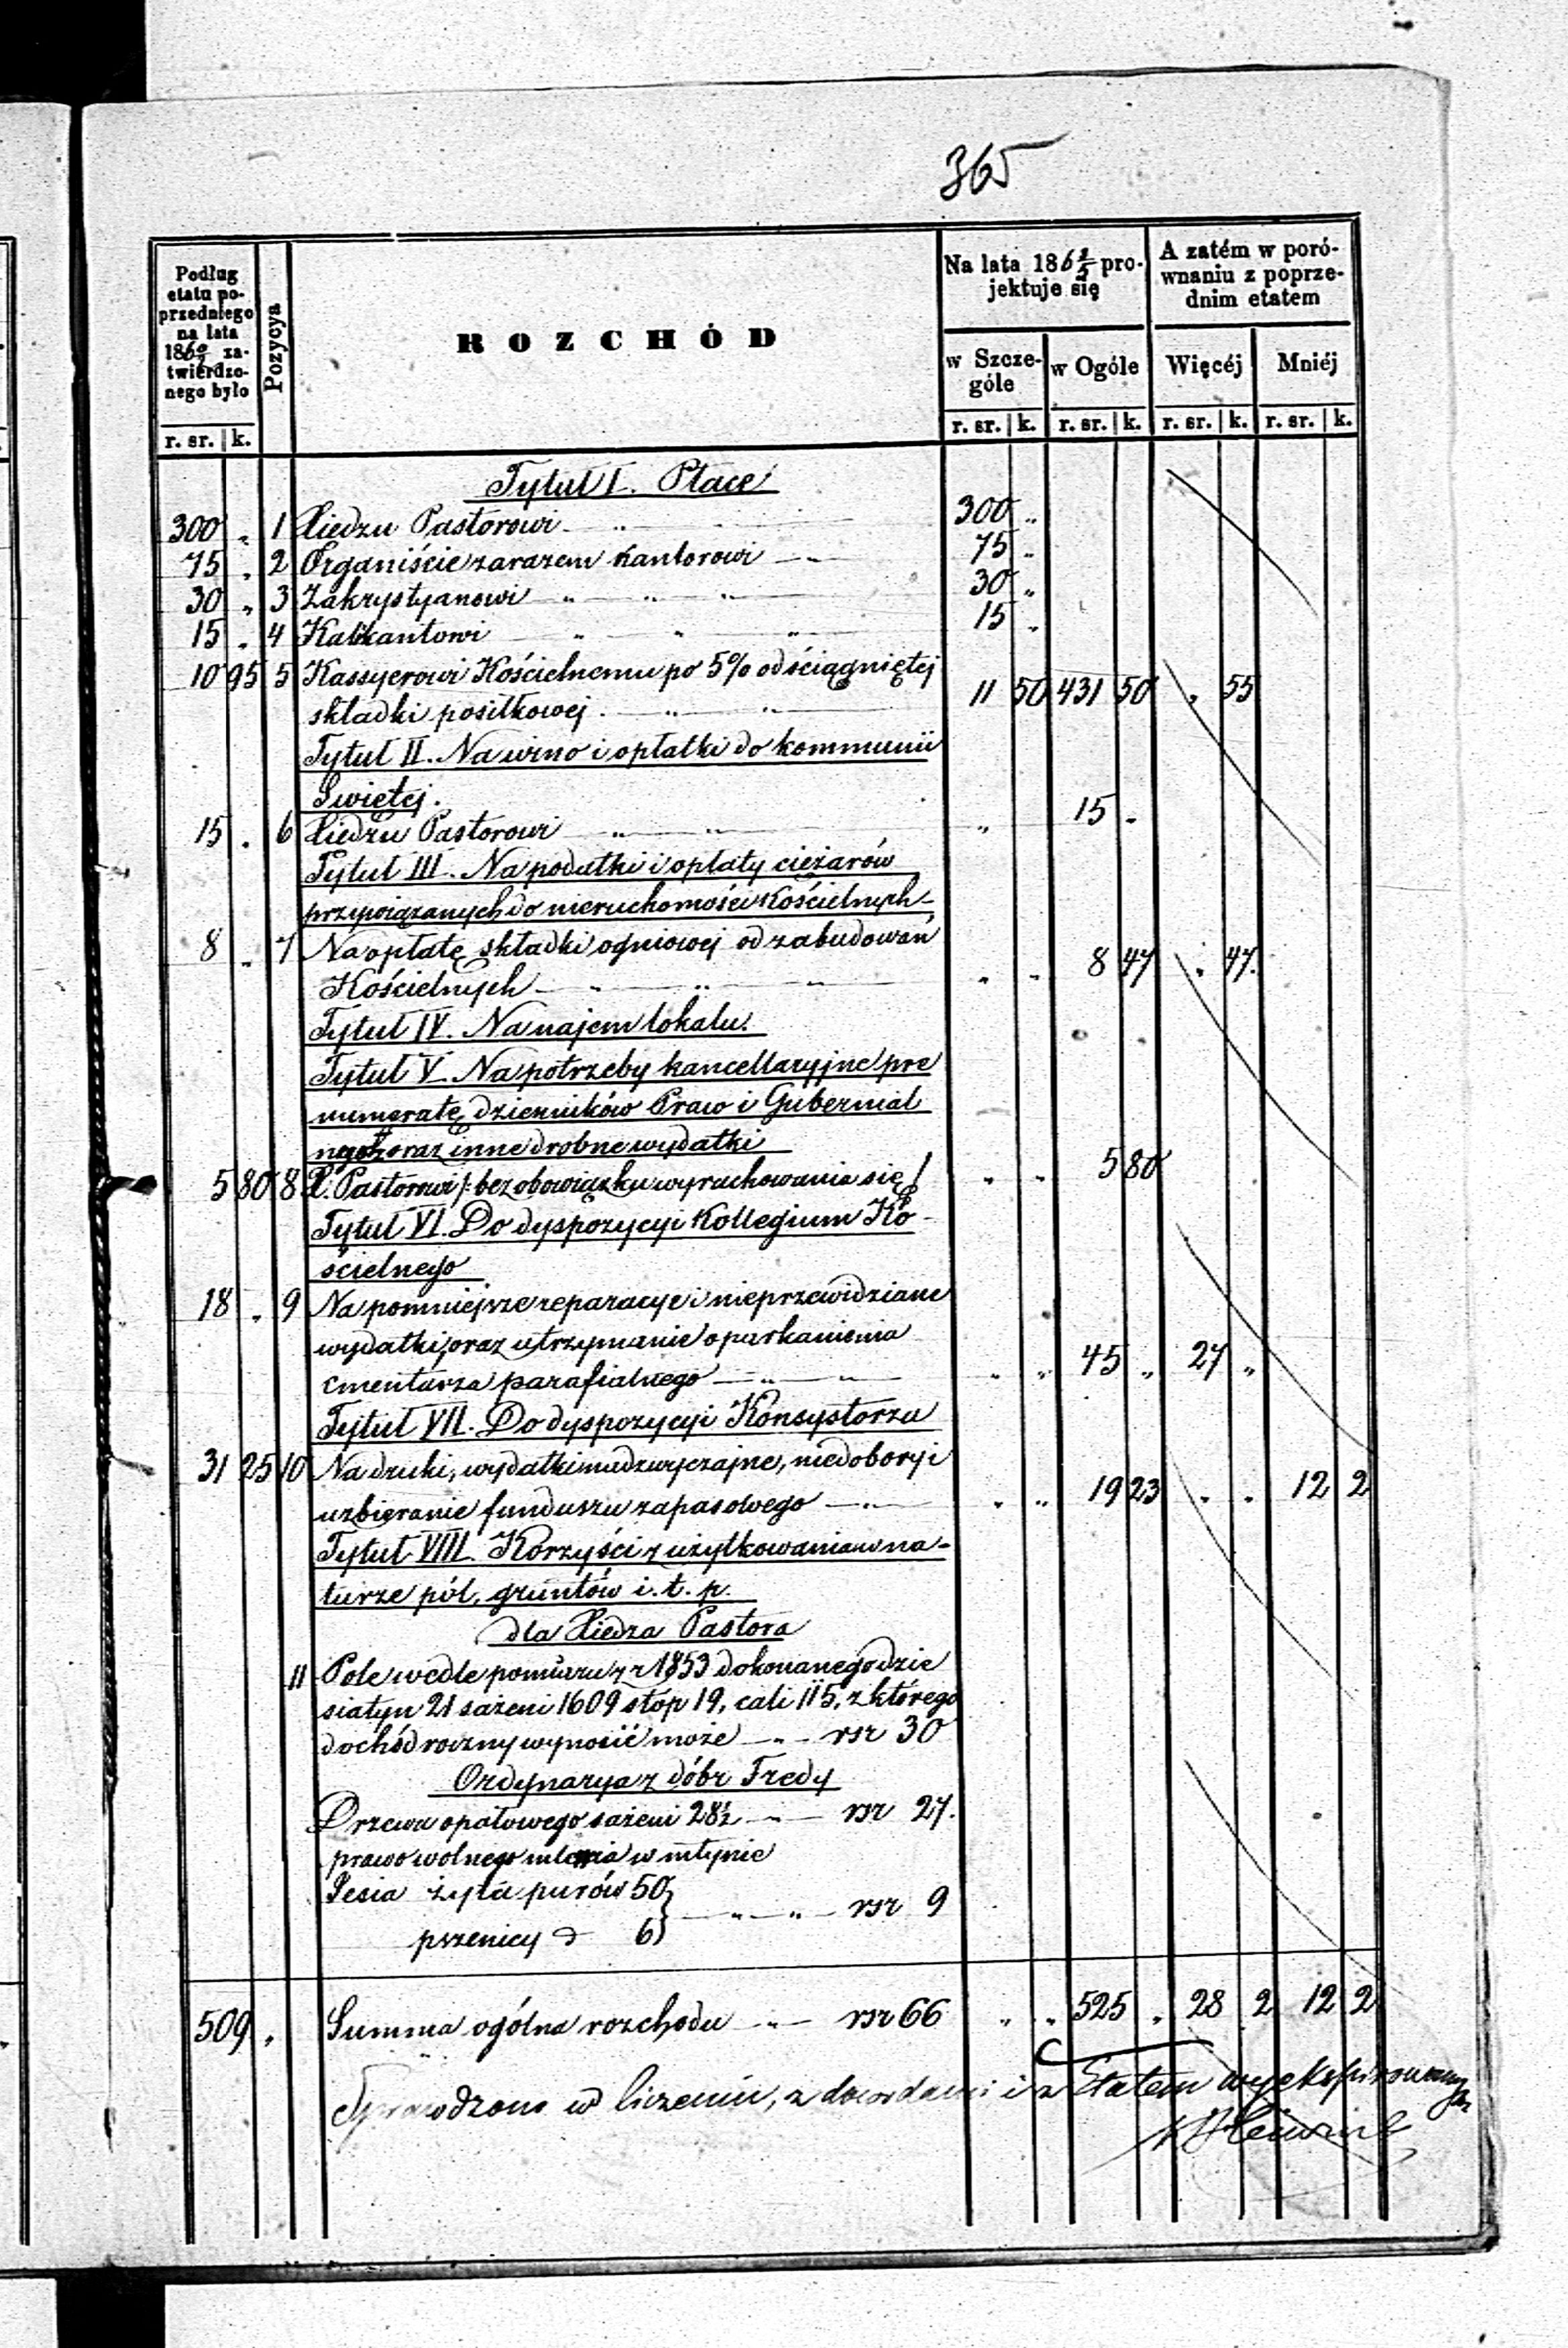 365
Podług etatu poprzedniego na lata 186 0/2 zatwierdzonego było
Pozycya
ROZCHÓD
Na lata 186 3/5 projektuje się
A zatém w porównaniu z poprzednim etatem
w Szczególe
w Ogóle
Więcéj
Mniéj
r. sr. k.
r. sr. k. r. sr. k. r. sr. k. r. sr. k.
Tytuł I. Płace
300 „ 1 Xiedzu Pastorowi 300 „
75 „ 2 Organiście zarazem kantorowi 75 „
30 „ 3 Zakrystyanowi 30 „
15 „ 4 Kalikantowi 15 „
10 95 5 Kassyerowi Kościelnemu po 5% od ściągniętej
składki posiłkowej 11 50 431 50 „ 55
Tytuł II. Na wino i opłatki do kommunii
Swiętej.
15 „ 6 Xiedzu Pastorowi „ 15 „
Tytuł III. Na podatki i opłaty ciężarów
przywiązanych do nieruchomości Kościelnych
8 „ 7 Na opłatę składki ogniowej od zabudowań
Kościelnych „ „ 8 47 „ 47.
Tytuł IV. Na najem lokalu.
Tytuł V. Na potrzeby kancellaryjne pre
numeratę dzienników Praw i Gubernial
nego oraz inne drobne wydatki
5 80 8 X. Pastorowi /: bez obowiązku wyrachowania się / „ „ 5 80
Tytuł VI. Do dyspozycyi Kollegium Ko-
ścielnego
18 „ 9 Na pomniejsze reparacye i nieprzewidziane
wydatki, oraz utrzymanie oparkanienia
cmentarza parafialnego „ „ 45 „ 27 „
Tytuł VII. Do dyspozycyi Konsystorza
31 25 10 Na druki, wydatki nadzwyczajne, niedobory i
uzbieranie funduszu zapasowego „ „ 19 23 „ „ 12 2
Tytuł VIII. Korzyści z użytkowania w na-
turze pól, gruntów i. t. p.
dla Xiedza Pastora
11 Pole wedle pomiaru z r 1853 dokonanego dzie
siatyn 21 sażeni 1609 stóp 19, cali 115, z którego
dochód roczny wynosić może rsr 30
Ordynarya z dóbr Fredy
Drzewa opałowego sażeni 28½ rsr 27.
prawo wolnego mlenia w młynie
Sesia żyta purów 50 } rsr 9
pszenicy d 6
509 „ Summa ogólna rozchodu rsr 66 „ „ 525 „ 28 2 12 2
Sprawdzono w liczeniu, z dowodami i z Etatem